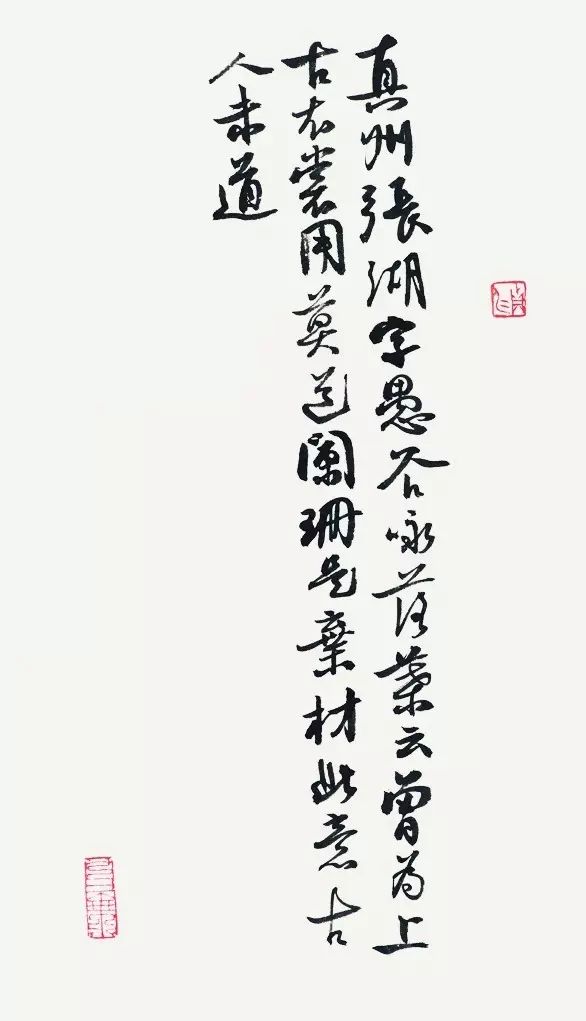 真州張湖字愚谷詠落葉云曾為上
古衣裳用莫道闌珊是棄材此意古
人未道